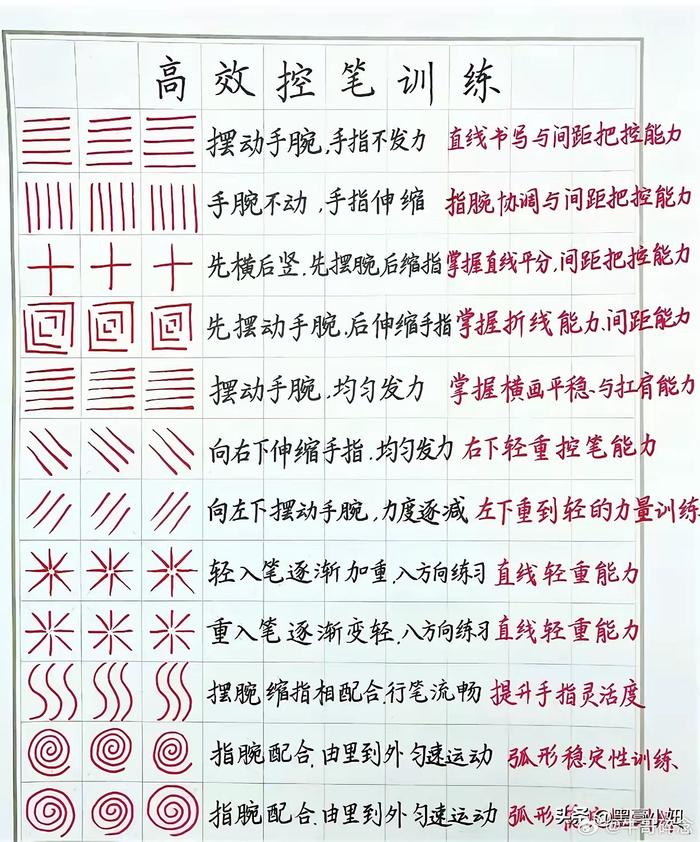 高效控笔训练
摆动手腕,手指不发力 直线书写与间距把控能力
手腕不动,手指伸缩 指腕协调与间距把控能力
先横后竖.先摆腕,后缩指 掌握直线平分,间距把控能力
先摆动手腕,后伸缩手指 掌握折线能力.间距能力
摆动手腕,均匀发力 掌握横画平稳与扛肩能力
向右下伸缩手指.均匀发力 右下轻重控笔能力
向左下摆动手腕,力度逐减 左下重到轻的力量训练
轻入笔逐渐加重.入方向练习 直线轻重能力
重入笔逐渐变轻.八方向练习 直线轻重能力
摆腕缩指相配合.行笔流畅 提升手指灵活度
指腕配合.由里到外匀速运动 弧形稳定性训练
指腕配合.由里到外匀速运动 弧形
头条